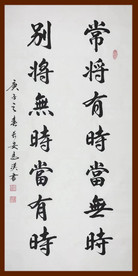 常將有時當無時
別將無時當有時
庚子之春